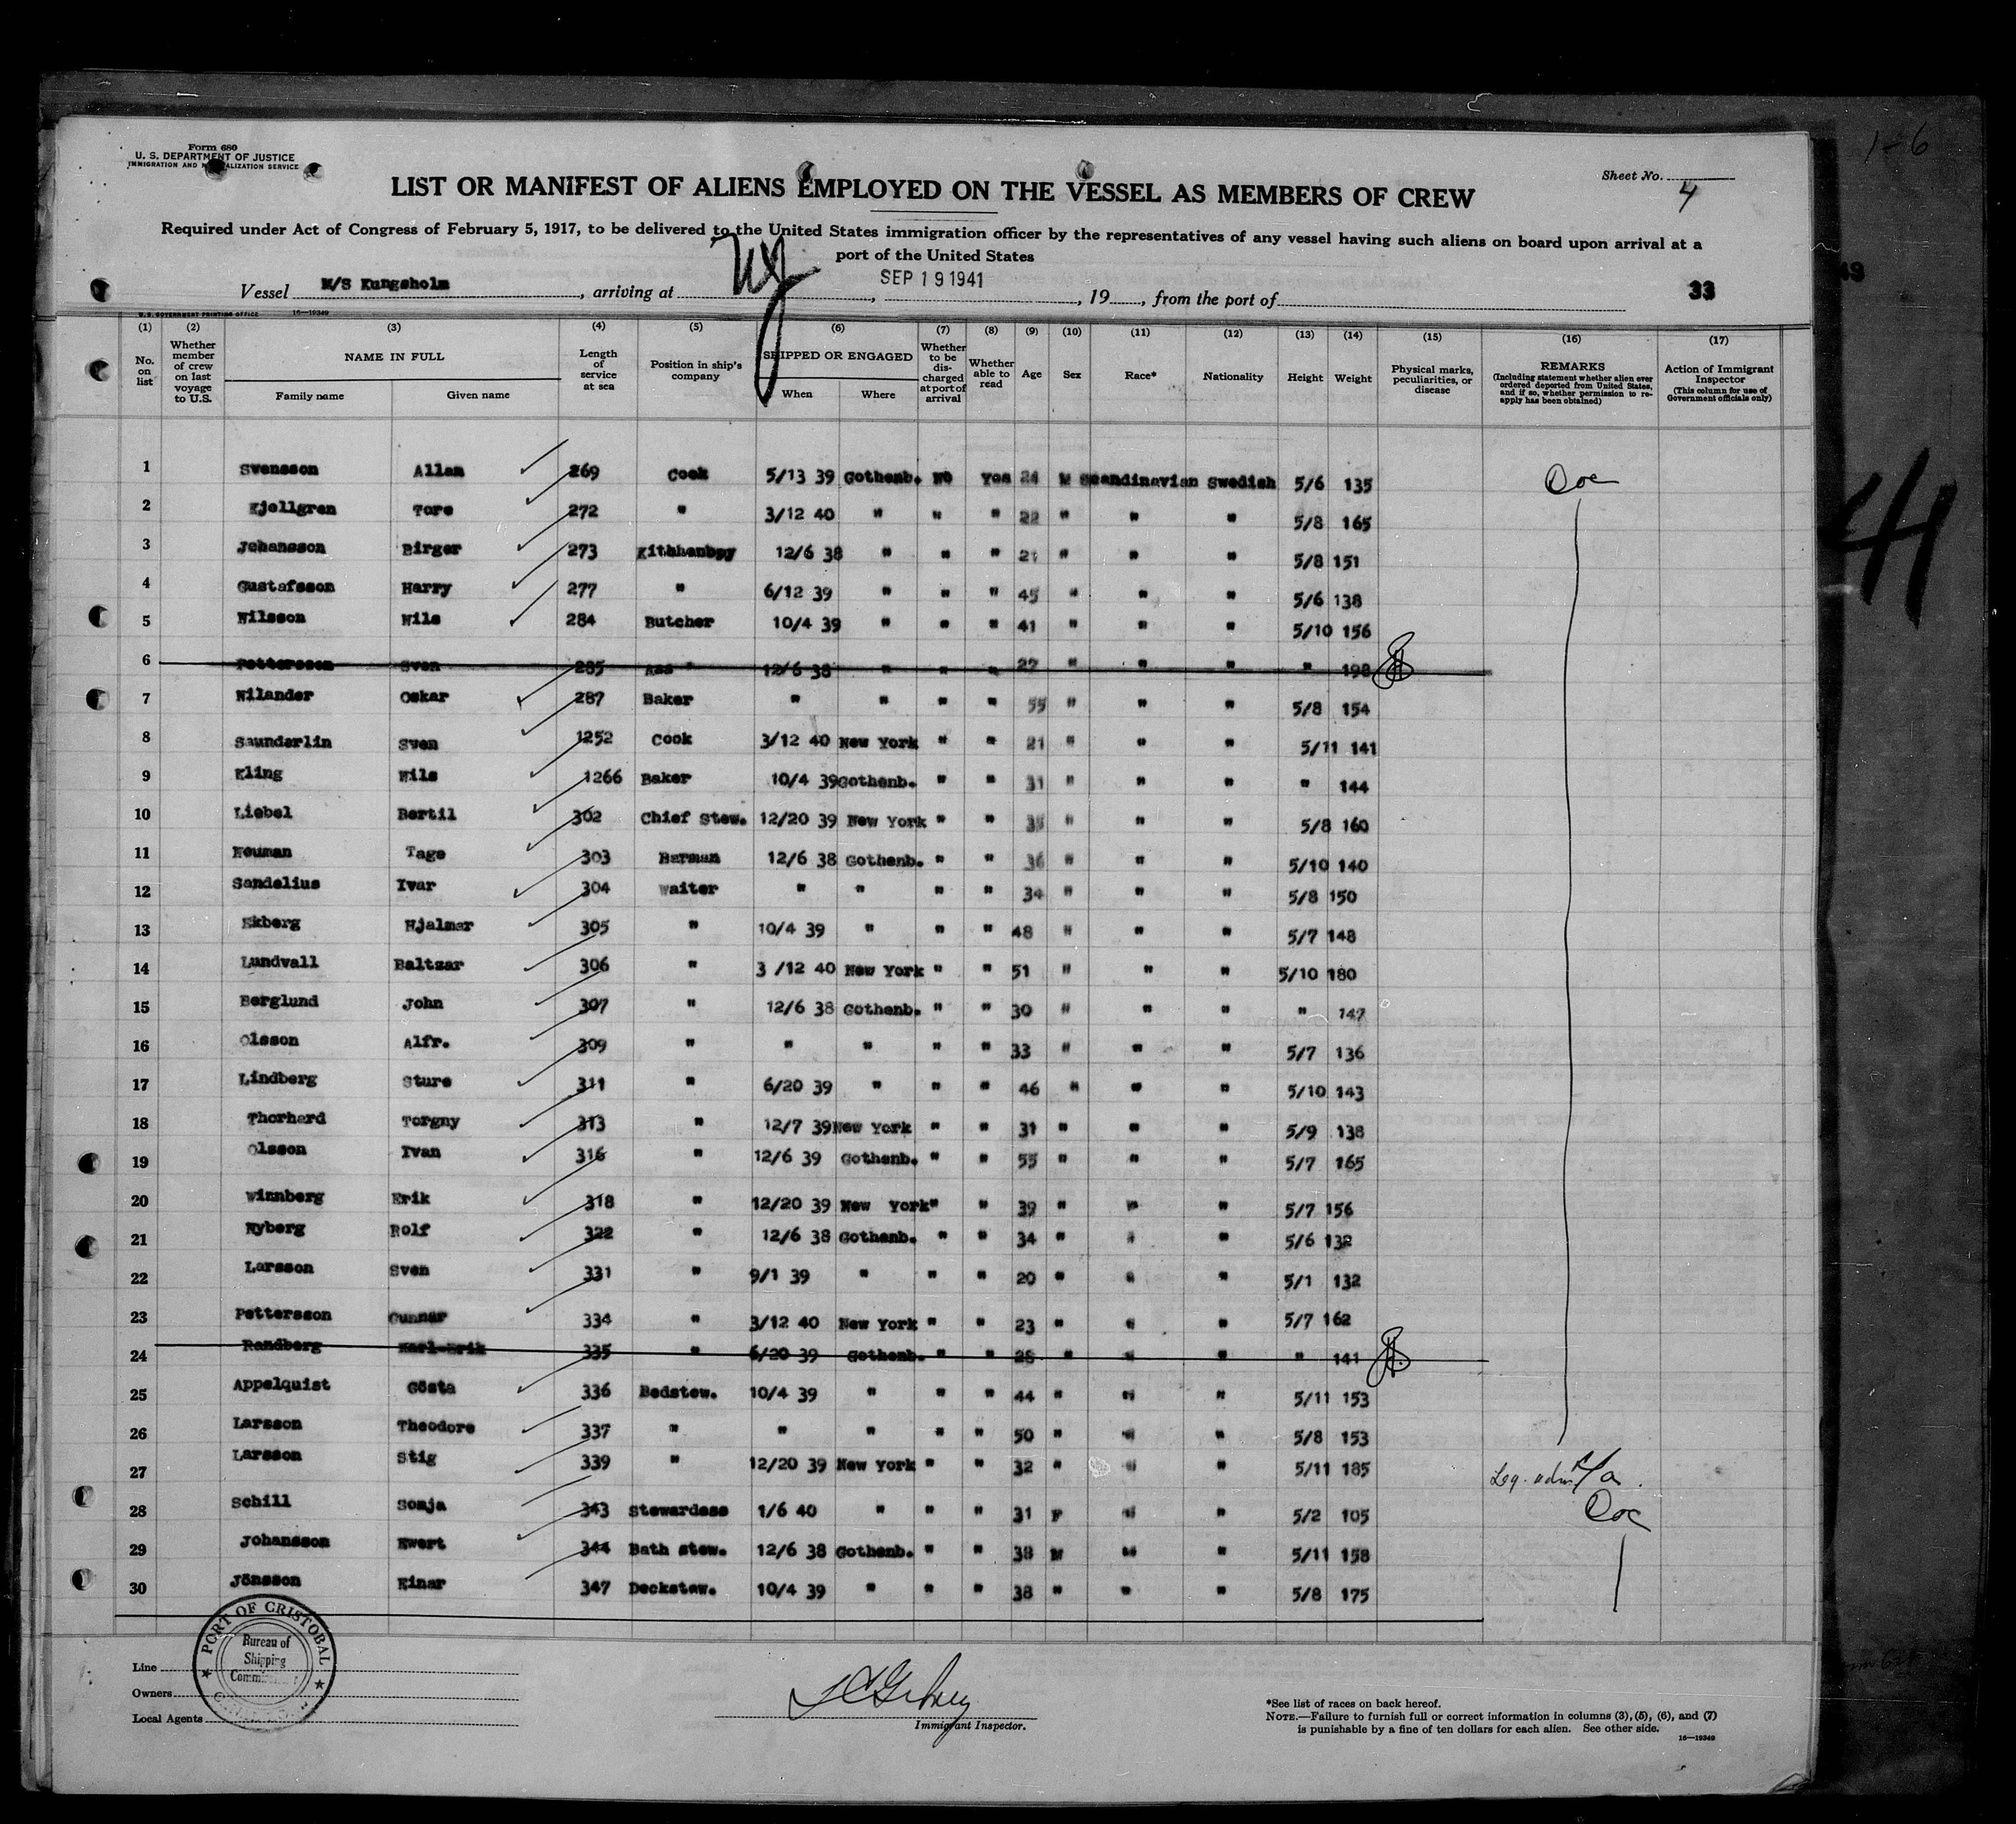 Form 680
U. S. DEPARTMENT OF JUSTICE
IMMIGRATION AND NATURALIZATION SERVICE
Sheet No. 4
LIST OR MANIFEST OF ALIENS EMPLOYED ON THE VESSEL AS MEMBERS OF CREW
Required under Act of Congress of February 5, 1917, to be delivered to the United States immigration officer by the representatives of any vessel having such aliens on board upon arrival at a
port of the United States
Vessel M/S Kungsholm, arriving at NY, SEP 19 1941, 19, from the port of
33
16—19349
(1) (2) (3) (4) (5) (6) (7) (8) (9) (10) (11) (12) (13) (14) (15) (16) (17)
No. on list
Whether member of crew on last voyage to U.S.
NAME IN FULL
Family name Given name
Length of service at sea
Position in ship's company
SHIPPED OR ENGAGED
When Where
Whether to be discharged at port of arrival
Whether able to read
Age
Sex
Race*
Nationality
Height
Weight
Physical marks, peculiarities, or disease
REMARKS
(Including statement whether alien ever ordered deported from United States, and if so, whether permission to reapply has been obtained)
Action of Immigrant Inspector
(This column for use of Government officials only)
1 Svensson Allan 269 Cook 5/13 39 Gothenb. No Yes 24 M Scandinavian Swedish 5/6 135
2 Kjellgren Tore 272 " 3/12 40 " " " 22 " " " 5/8 165
3 Johansson Birger 273 Kithhenbpy 12/6 38 " " " 21 " " " 5/8 151
4 Gustafsson Harry 277 " 6/12 39 " " " 45 " " " 5/6 138
5 Nilsson Nils 284 Butcher 10/4 39 " " " 41 " " " 5/10 156
6 Pettersson Sven 285 Ass " 12/6 38 " " " 27 " " " " 198
7 Wilander Oskar 287 Baker " " " " 55 " " " 5/8 154
8 Saunderlin Sven 1252 Cook 3/12 40 New York " " 21 " " " 5/11 141
9 Kling Nils 1266 Baker 10/4 39 Gothenb. " " 31 " " " " 144
10 Liebel Bertil 302 Chief Stew. 12/20 39 New York " " 35 " " " 5/8 160
11 Neuman Tage 303 Barman 12/6 38 Gothenb. " " 36 " " " 5/10 140
12 Sandelius Ivar 304 Waiter " " " " 34 " " " 5/8 150
13 Ekberg Hjalmar 305 " 10/4 39 " " " 48 " " " 5/7 148
14 Lundvall Baltzar 306 " 3 /12 40 New York " " 51 " " " 5/10 180
15 Berglund John 307 " 12/6 38 Gothenb. " " 30 " " " " 147
16 Olsson Alfr. 309 " " " " " 33 " " " 5/7 136
17 Lindberg Sture 311 " 6/20 39 " " " 46 " " " 5/10 143
18 Thorhard Torgny 313 " 12/7 39 New York " " 31 " " " 5/9 138
19 Olsson Ivan 316 " 12/6 39 Gothenb. " " 55 " " " 5/7 165
20 Winnberg Erik 318 " 12/20 39 New York " " 39 " " " 5/7 156
21 Nyberg Rolf 322 " 12/6 38 Gothenb. " " 34 " " " 5/6 132
22 Larsson Sven 331 " 9/1 39 " " " 20 " " " 5/1 132
23 Pettersson Gunnar 334 " 3/12 40 New York " " 23 " " " 5/7 162
24 Randberg Karl-Erik 335 " 6/20 39 Gothenb. " " 28 " " " " 141
25 Appelquist Gösta 336 Bedstew. 10/4 39 " " " 44 " " " 5/11 153
26 Larsson Theodore 337 " " " " " 50 " " " 5/8 153
27 Larsson Stig 339 " 12/20 39 New York " " 32 " " " 5/11 185
28 Schill Sonja 343 Stewardess 1/6 40 " " " 31 F " " 5/2 105
29 Johansson Ewert 344 Bath stew. 12/6 38 Gothenb. " " 38 M " " 5/11 158
30 Jönsson Einar 347 Deckstew. 10/4 39 " " " 38 " " " 5/8 175
PORT OF CRISTOBAL
Bureau of
Shipping
Line
Owners
Local Agents
Immigrant Inspector.
*See list of races on back hereof.
NOTE.—Failure to furnish full or correct information in columns (3), (5), (6), and (7)
is punishable by a fine of ten dollars for each alien. See other side.
16—19349
1-6
41